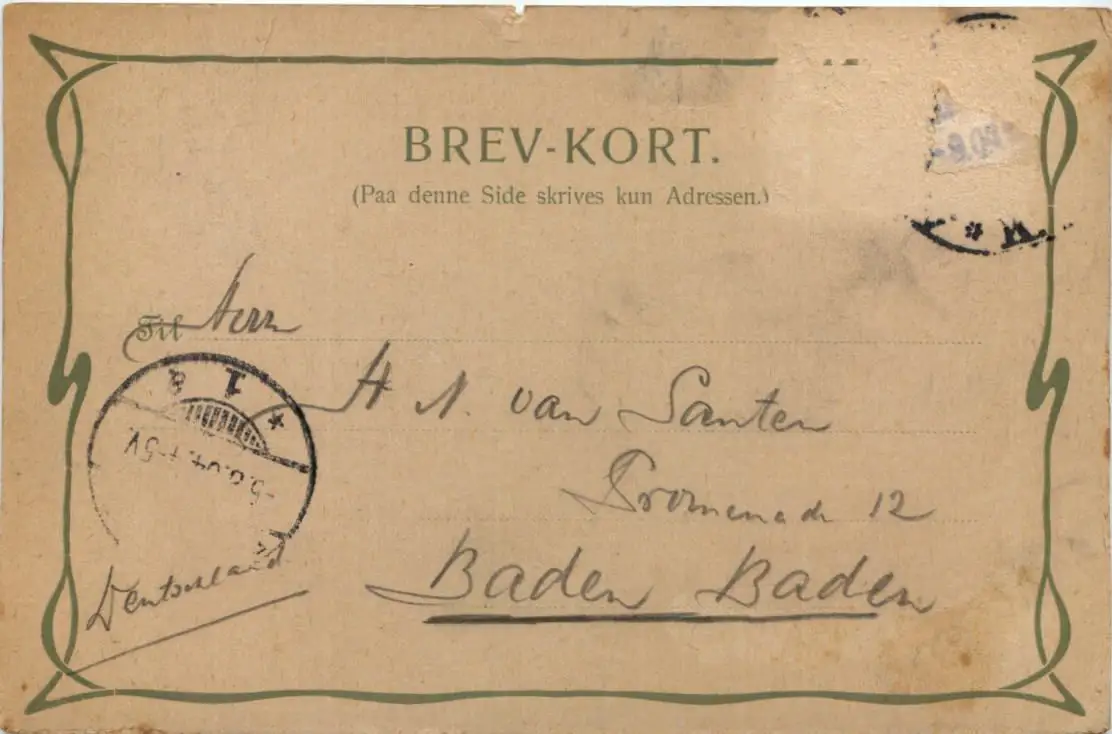 BREV-KORT.
(Paa denne Side skrives kun Adressen.)
Til Herrn
H N. van Santen
Promenade 12
Baden Baden
Deutschland